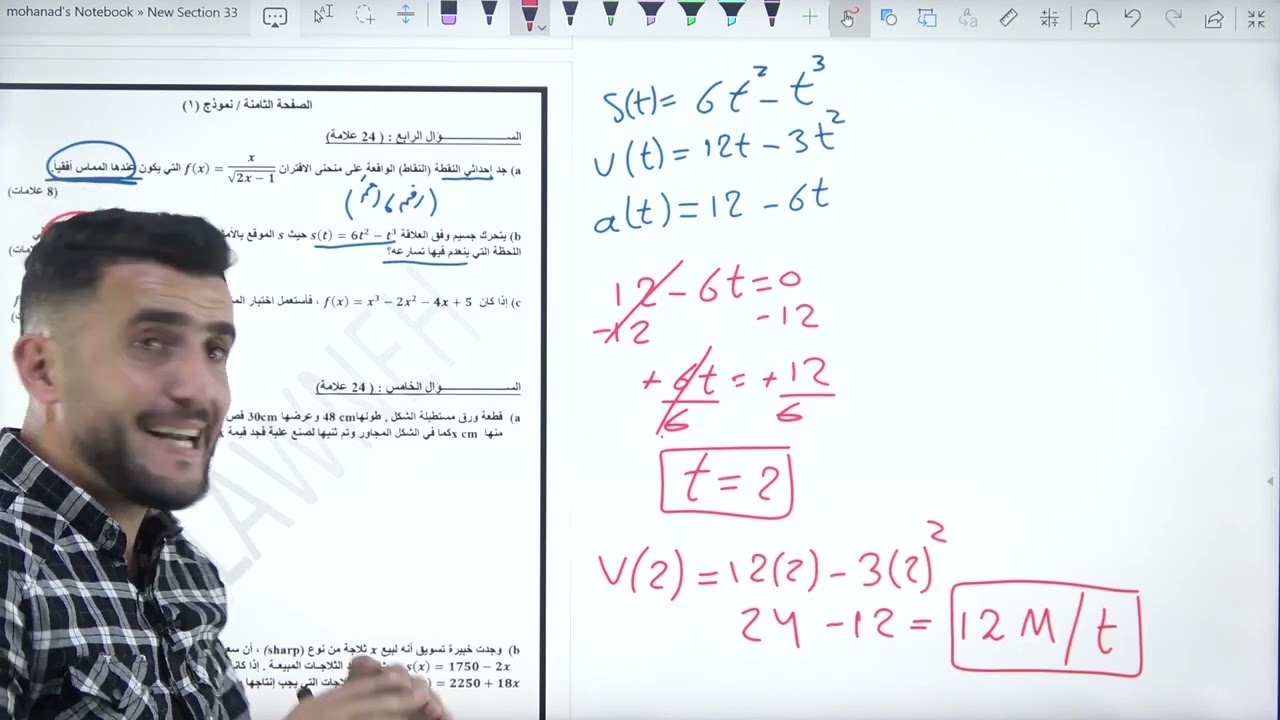 mohanad's Notebook » New Section 33
الصفحة الثامنة / نموذج (١)
الســـــــؤال الرابع : ( 24 علامة)
a) جد إحداثي النقطة (النقاط) الواقعة على منحنى الاقتران f(x) = x/√2x − 1 التي يكون عندها المماس أفقيا.
(8 علامات)
b) يتحرك جسيم وفق العلاقة s(t) = 6t² − t³ حيث s الموقع
اللحظة التي ينعدم فيها تسارعه؟
c) إذا كان f(x) = x³ − 2x² − 4x + 5 ، فأستعمل اختبار
الســـــــؤال الخامس : ( 24 علامة)
a) قطعة ورق مستطيلة الشكل , طولها 48 cm وعرضها 30cm
منها x cm كما في الشكل المجاور وتم ثنيها لصنع علبة فجد قيمة
LAWNEH
b) وجدت خبيرة تسويق أنه لبيع x ثلاجة من نوع (sharp) ، أن
s(x) = 1750 − 2x الثلاجات المبيعة . إذا
= 2250 + 18x التي يجب إنتاجها
S(t)= 6t² - t³
v(t) = 12t - 3t²
a(t) = 12 - 6t
12 - 6t = 0
-12 -12
+6t = +12
6 6
t = 2
V(2) = 12(2) - 3(2)²
24 - 12 = 12 M/t